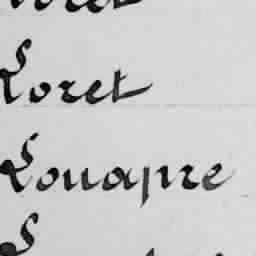 Loret
Louapre